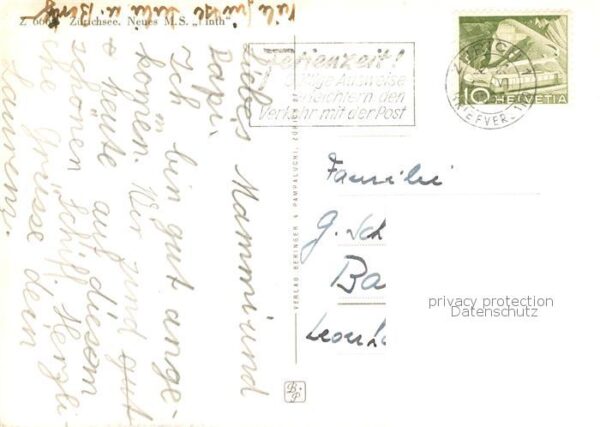 Zürichsee. Neues M.S. „Linth"
Liebes Mammi und
Papi.
Ich bin gut ange-
kommen. Wir sind gut
+ heute auf diesem
schönen Schiff. Herzli-
che Grüsse dein
Ferienzeit!
Gültige Ausweise
erleichtern den
Verkehr mit der Post
ZÜRICH 1
BRIEFVER
10 HELVETIA
VERLAG BERINGER & PAMPALUCHI, ZÜRICH
Familie
G. Sch
Ba
privacy protection
Datenschutz
B.P